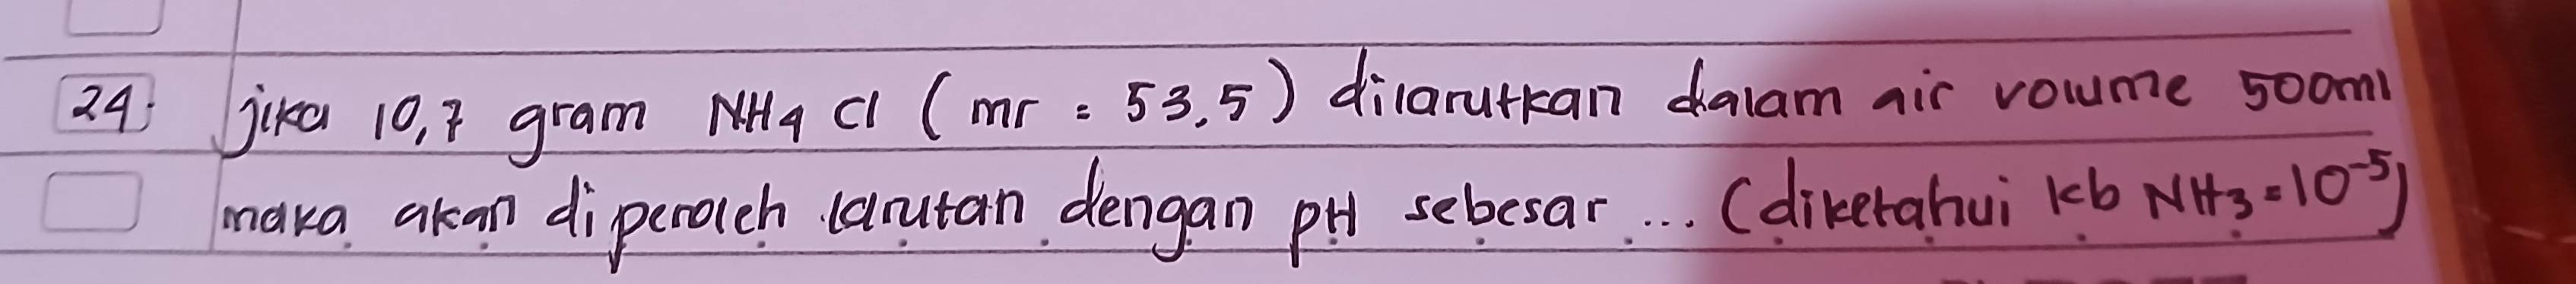 24. jika 10,7 gram NH4 Cl (mr = 53,5) dilarutkan dalam air volume 500ml
maka akan diperoleh larutan dengan pH sebesar ... (diketahui kb NH3=10⁻⁵)